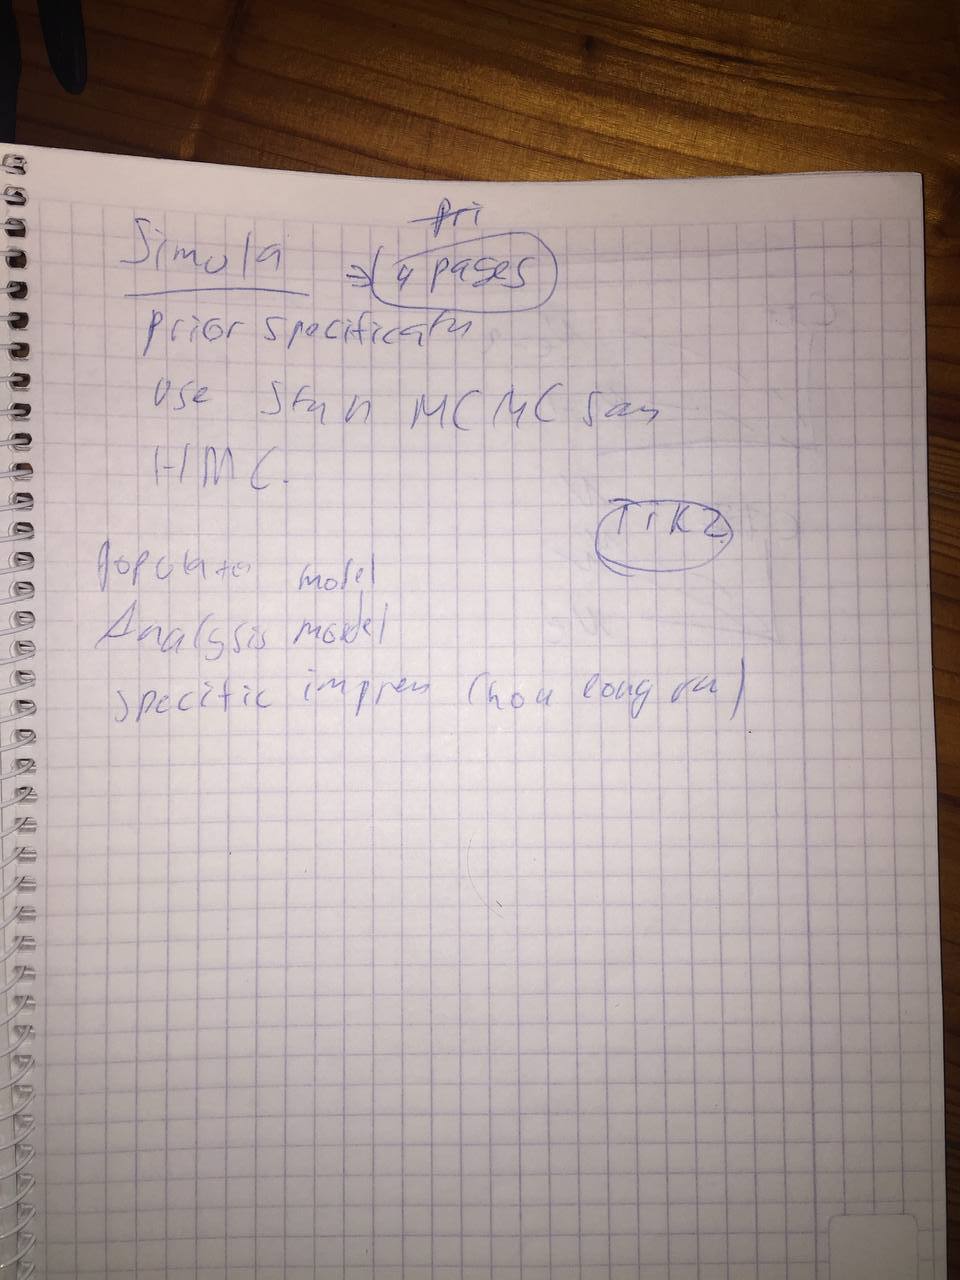 Pri
Simula ⇒ 4 pages
prior specificatn
use Stan MCMC Sam
HMC.
TikZ
model
Analysis model
specific (how long run)